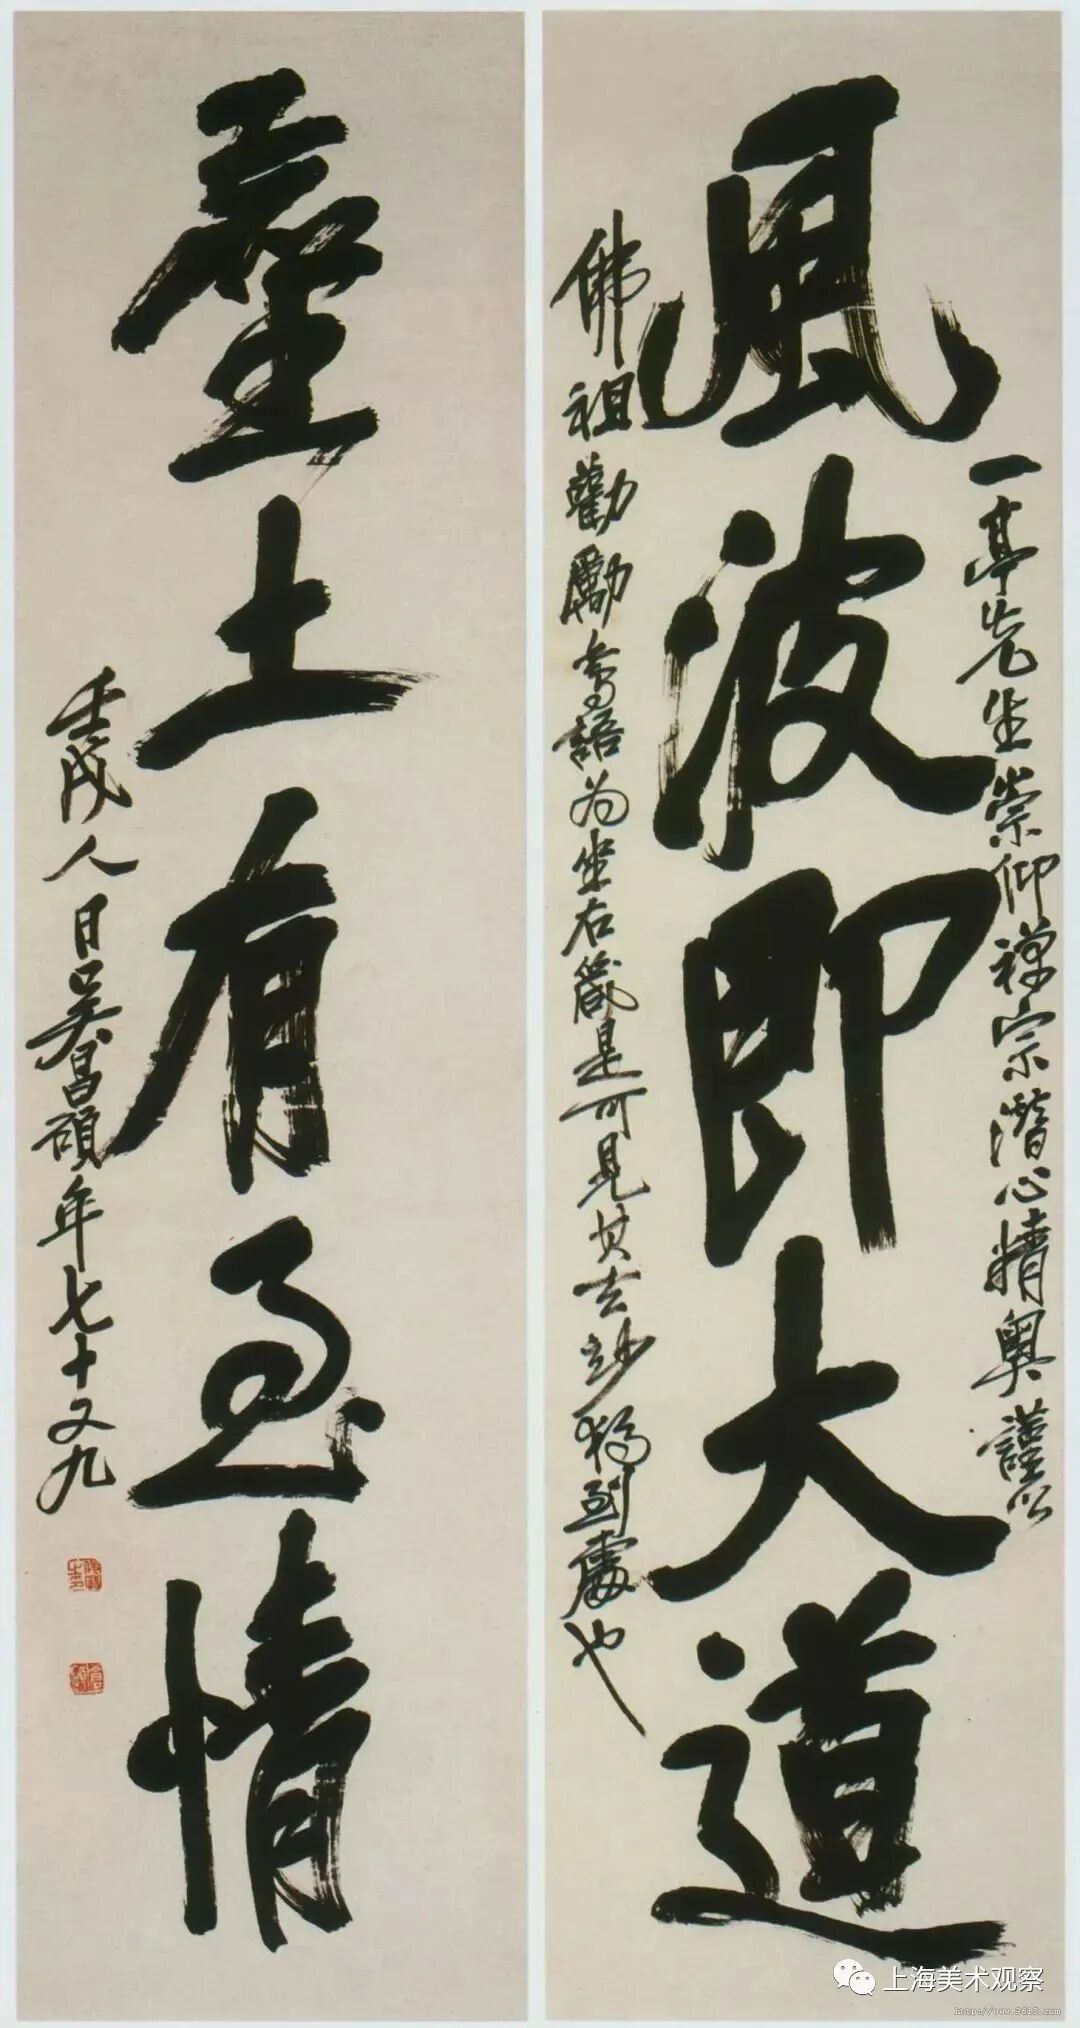 一亭先生崇仰禪宗潛心精奧謹以
風波即大道
佛祖勸勵等語为坐右箴是可見其玄妙獨到處也
塵土有至情
壬戌人日吳昌碩年七十又九
上海美术观察